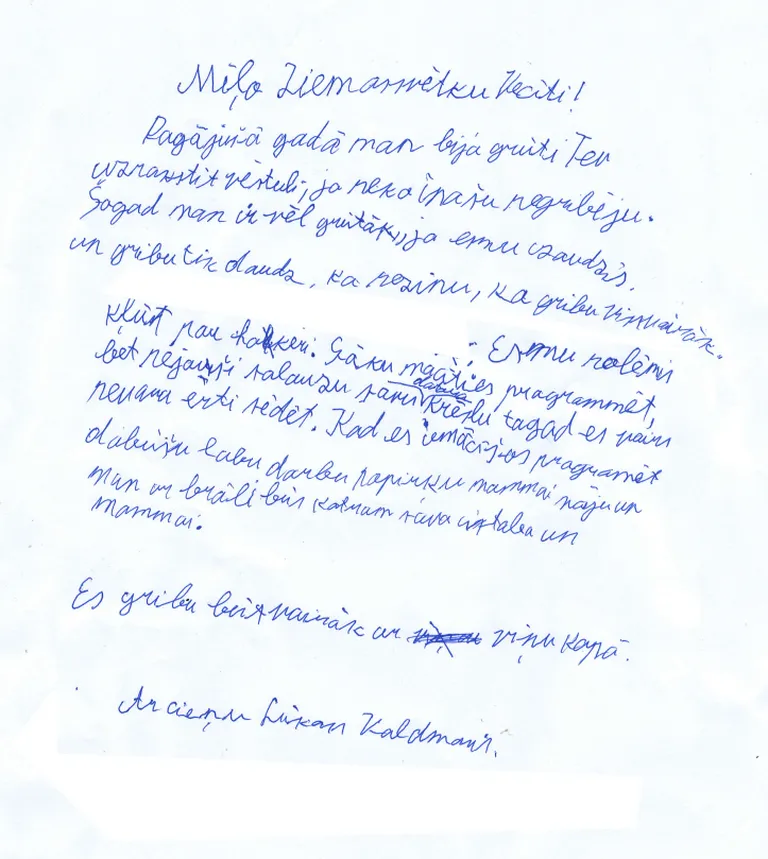 Mīļo Ziemassvētku Vecīti!
Pagājušā gadā man bija grūti Tev
uzrakstīt vēstuli, jo neko īpašu negribēju.
Šogad man ir vēl grūtāk, jo esmu izaudzis
un gribu tik daudz, ka nezinu, ko gribu visvairāk.
Esmu nolēmis
kļūt par hakeri. Sāku mācīties programmēt,
bet nejauši salauzu savu darba krēslu tagad es vairs
nevaru ērti sēdēt. Kad es iemācīšos programēt
dabūšu labu darbu nopirkšu mammai māju un
man ar brāli būs katram sava istaba un
mammai.
Es gribu būt vairāk ar viņu kopā.
Ar cieņu Lūkass Kaldmanis.